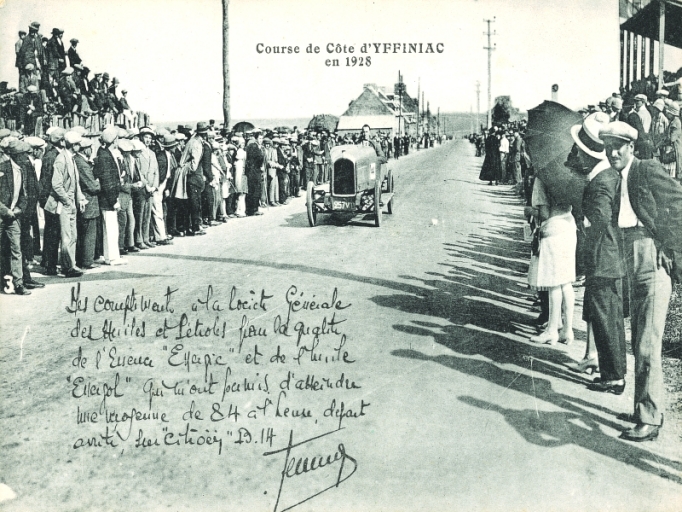 Course de Côte d'YFFINIAC
en 1928
957V
Mes compliments à la Société Générale
des Huiles et Pétroles pour la qualité
de l'Essence "Energic" et de l'huile
"Energol" qui m'ont permis d'atteindre
une moyenne de 84 à l'heure, départ
arrêté, sur "Citroën" B.14